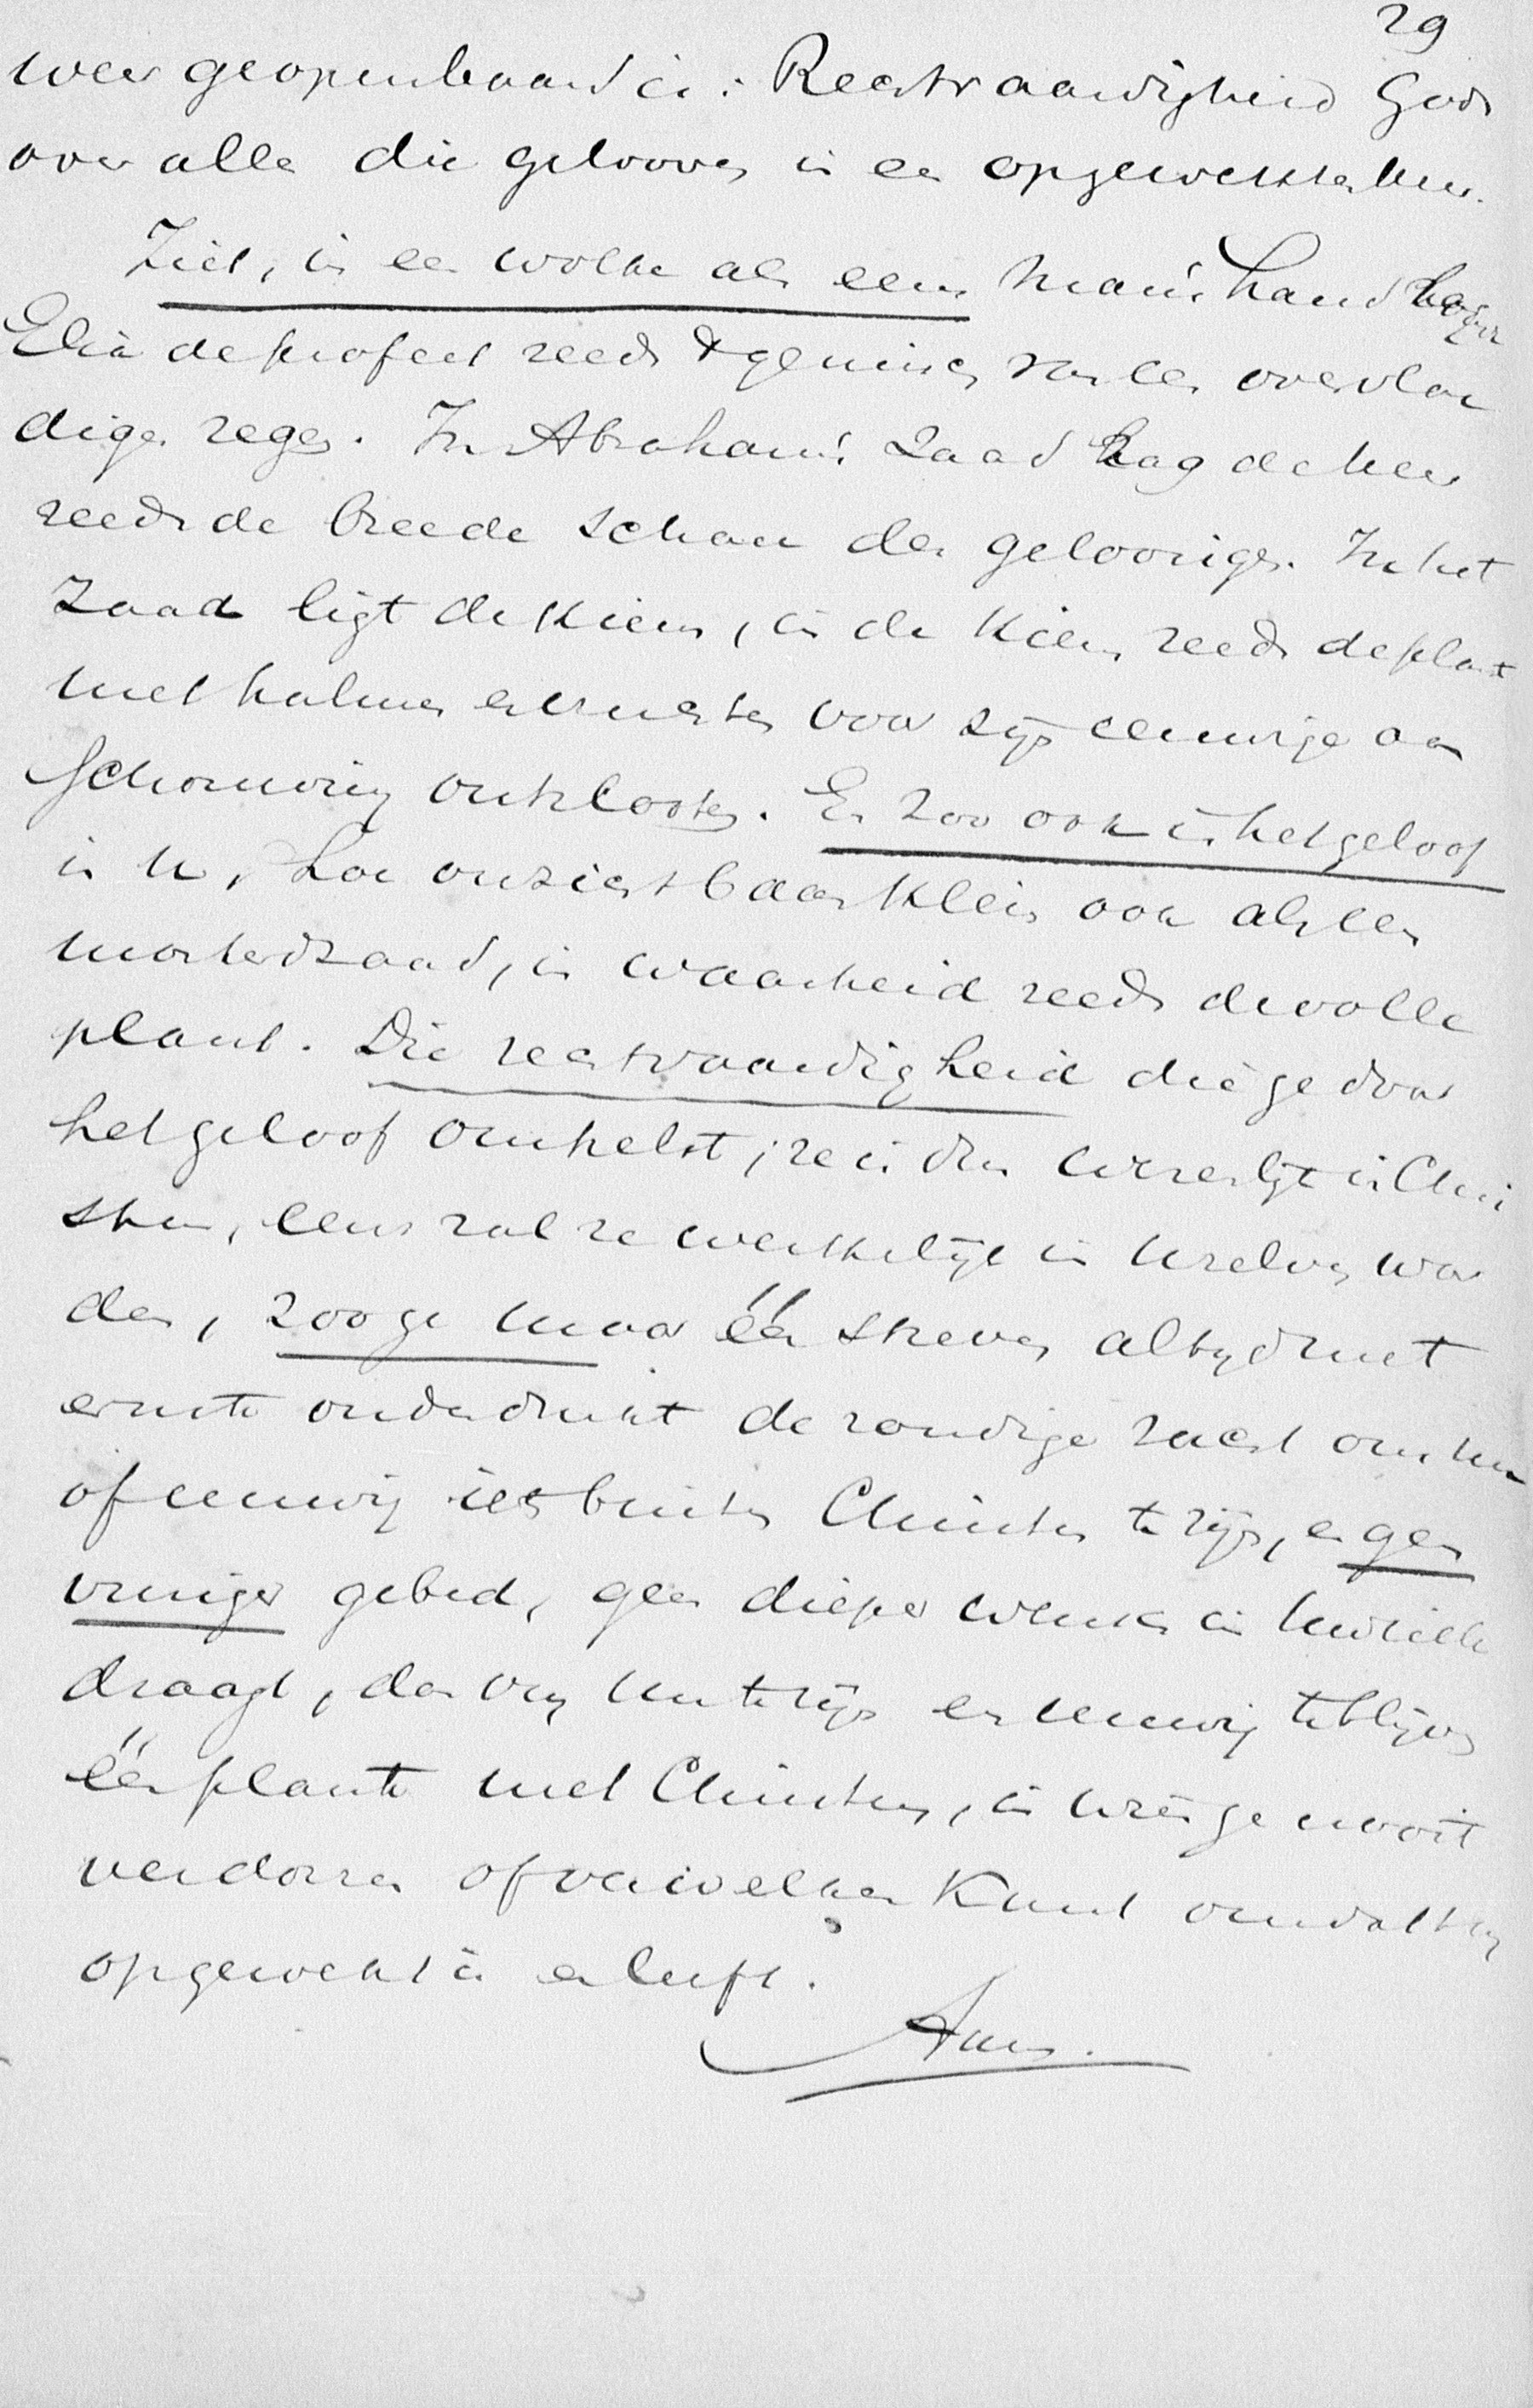 29
weer geopenbaard is: Rechtvaardigheid Gods
over alle die gelooven in een opgewekten Heer.
Ziet, in een wolke als eens man's hand
Elia de profeet reeds het genieten van een overvloe
digen regen. In Abraham's zaad zag de Heer
reeds de breede schare der geloovigen. In het
zaad ligt de kiem, in de kiem reeds de plant
met halmen en vruchten voor zijn eeuwige aan
schouwing ontsloten. En zoo ook is het geloof
in u, hoe onzichtbaar klein ook als een
mosterdzaad, in waarheid reeds de volle
plant. Die rechtvaardigheid die ge door
het geloof omhelst, ze is dan wezenlijk in Chri
stus, eens zal ze werkelijk in u zelven wor
den, zoo ge maar één streven altijd met
ernste onderdrukt de zondige zucht om nu
of eeuwig iets buiten Christus te zijn, en geen
vuriger gebed, geen dieper wensch in uw ziele
draagt, dan om nu te zijn en eeuwig te blijven
ééne plante met Christus, in wien ge nooit
verdorren of verwelken kunt omdat hij
opgewekt is en leeft.
Amen.